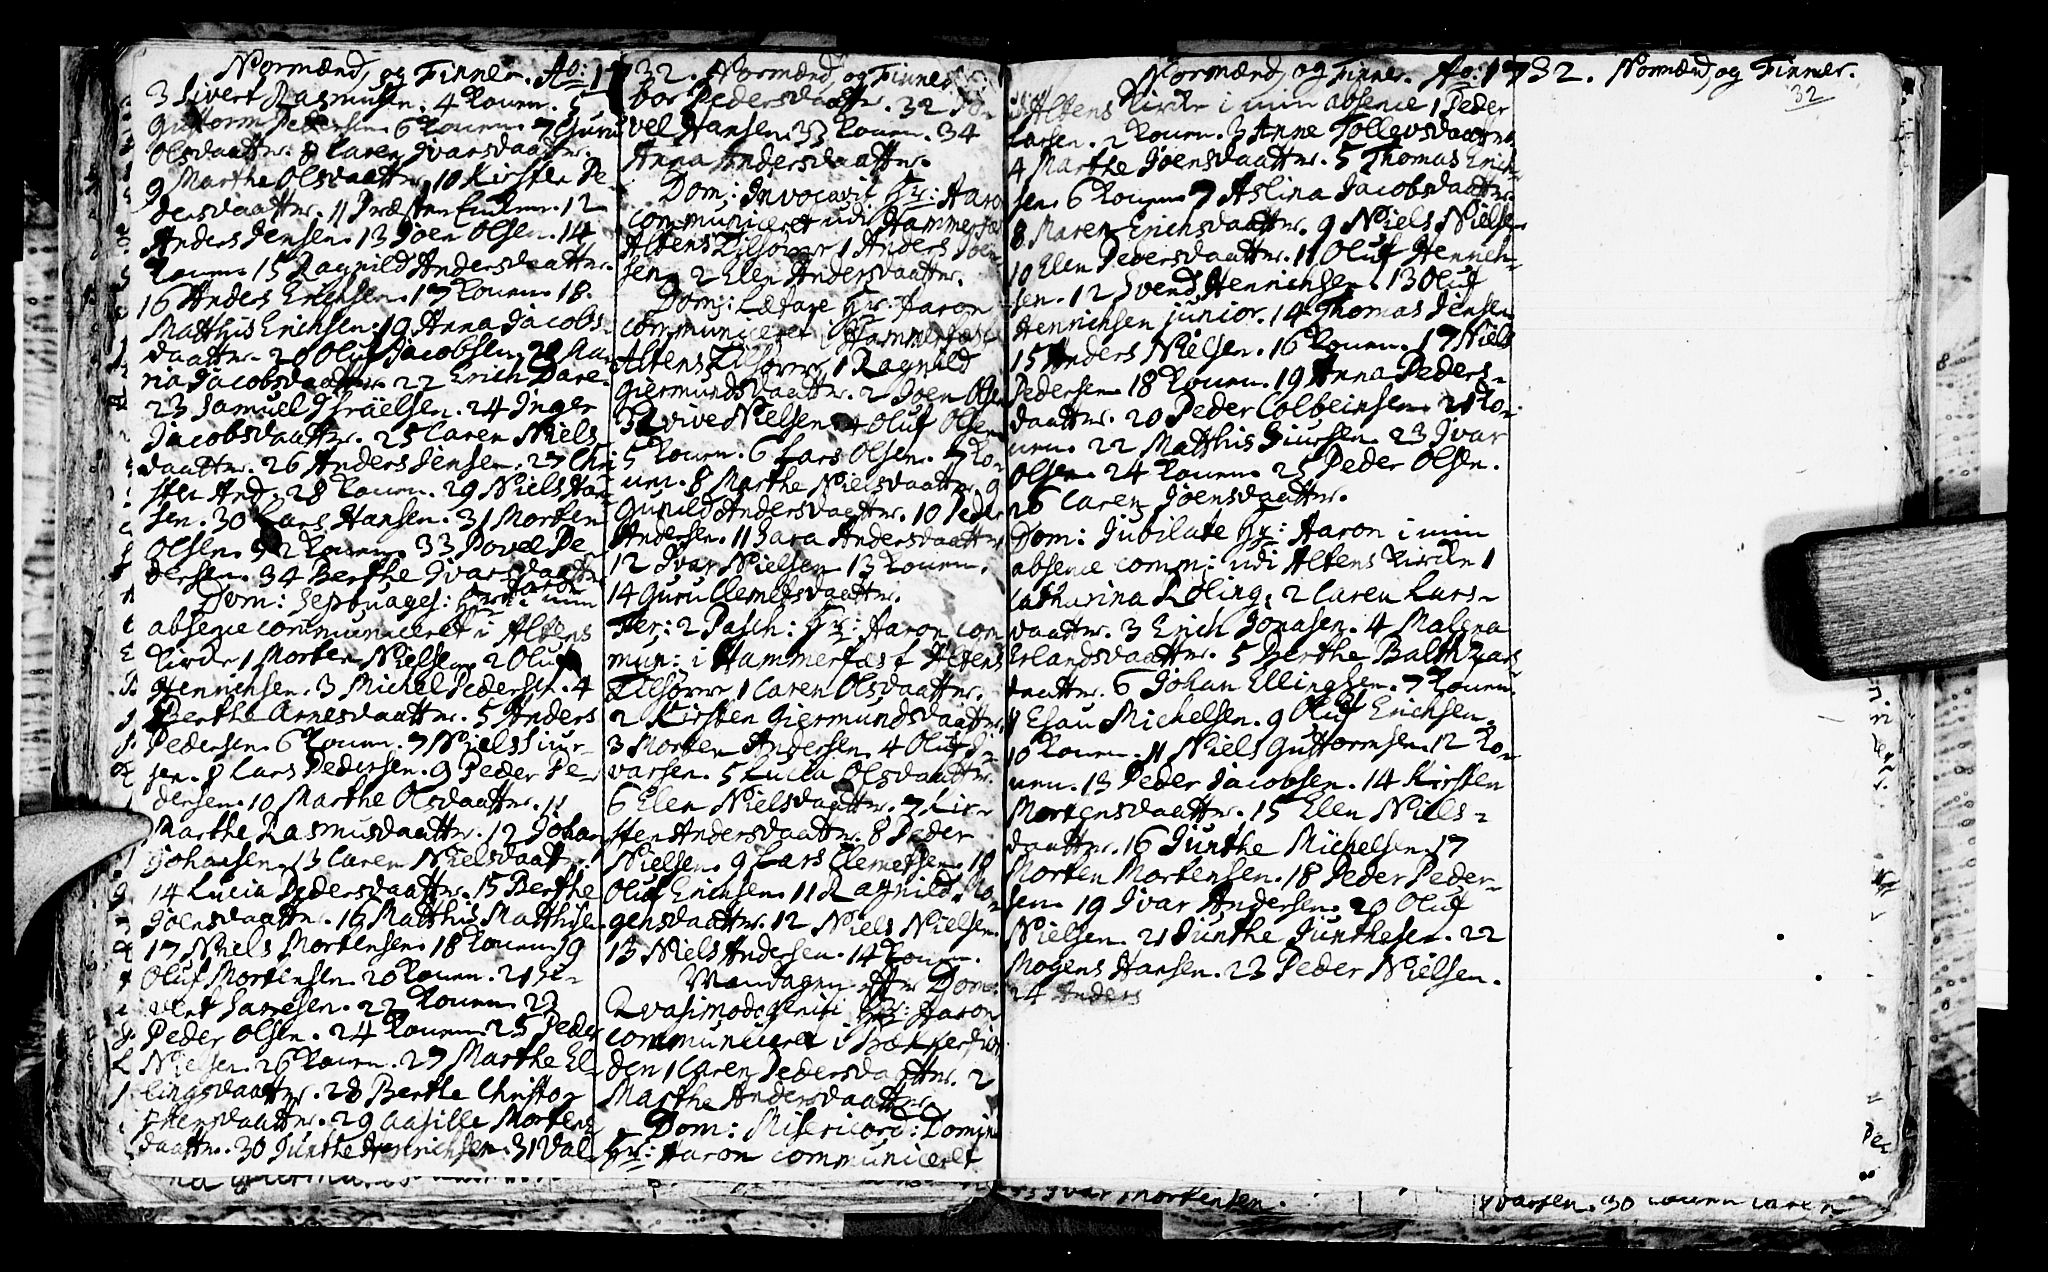 Normænd, og Finner. Ao: 1732. Normænd, og Finner.
3 Sivert Rasmussen. 4 Konen. 5
Guttorm Pedersen. 6 Konen. 7 Guru
Olsdaatter. 8 Caren Ivarsdaatter.
9 Marthe Olsdaatter. 10 Kirsten Pe-
dersdaatter. 11 Præsten Enken. 12
Anders Jensen. 13 Joen Olsen. 14
Konen. 15 Ragnild Andersdaatter.
16 Anders Erichsen. 17 Konen. 18
Matthis Erichsen. 19 Anna Jacobs-
daatter. 20 Oluf Jacobsen. 21 Ma-
ria Jacobsdaatter. 22 Erich Dare.
23 Samuel Israelsen. 24 Inger
Jacobsdaatter. 25 Caren Niels-
daatter. 26 Anders Jensen. 27 Chri
sten And. 28 Konen. 29 Niels Han-
sen. 30 Lars Hansen. 31 Morten
Olsen. 32 Konen. 33 Povel Pe-
dersen. 34 Berthe Ivarsdaatter
Dom: Septuages: i min
absence communiceret i Altens
Kircke 1 Morten Nielsen. 2 Oluf
Henrichsen. 3 Michel Pedersen. 4
Berthe Arnesdaatter. 5 Anders
Pedersen. 6 Konen. 7 Niels Siur-
sen. 8 Lars Pedersen. 9 Peder Pe-
dersen. 10 Marthe Olsdaatter. 11
Marthe Rasmusdaatter. 12 Johan
Johansen. 13 Caren Nielsdaatter.
14 Lucia Pedersdaatter. 15 Berthe
Joensdaatter. 16 Matthis Matthisen
17 Niels Mortensen. 18 Konen. 19
Oluf Mortensen. 20 Konen. 21 Si-
vert Larsen. 22 Konen. 23
Peder Olsen. 24 Konen. 25 Peder
Nielsen. 26 Konen. 27 Marthe El-
lingsdaatter. 28 Berthe Christop
phersdaatter. 29 Aasille Mortens
daatter. 30 Junthe Henrichsen. 31 Val-
bor Pedersdaatter. 32 Po-
vel Hansen. 33 Konen. 34
Anna Andersdaatter.
Dom: Invocavit Hr: Aaron
communiceret udi Hammerfæst
Altens Tilhører 1 Anders Joen-
sen. 2 Elen Andersdaatter.
Dom: Lætare Hr: Aaron
communiceret i Hammerfæst
Altens Tilhører 1 Ragnild
Giermundsdaatter. 2 Joen Olsen
3 Qvive Nielsen. 4 Oluf Olsen
5 Konen. 6 Lars Olsen. 7 Ko-
nen. 8 Marthe Nielsdaatter. 9
Gunild Andersdaatter. 10 Peder
Andersen. 11 Sara Andersdaatter
12 Ivar Nielsen 13 Konen.
14 Guru Clemetsdaatter.
Fer: 2 Pasch: Hr: Aaron com
mun: i Hammerfæst Altens
Tilhører 1 Caren Olsdaatter.
2 Kirsten Giermundsdaatter.
3 Morten Andersen. 4 Oluf I-
varsen. 5 Lucia Olsdaatter.
6 Elen Nielsdaatter. 7 Kir-
sten Andersdaatter. 8 Peder
Nielsen. 9 Lars Clemetsen. 10
Oluf Erichsen. 11 Ragnild Mo-
gensdaatter. 12 Niels Nielsen.
13 Niels Andersen. 14 Konen.
Mandagen efter Dom:
Qvasimodogeniti Hr: Aaron
communiceret i Bekkerfior
den 1 Caren Pedersdaatter. 2
Marthe Andersdaatter
Dom: Misericord: Domini
Hr: Aaron communiceret
Normænd, og Finner. Ao: 1732. Normænd, og Finner.
32
i Altens Kircke i min absence 1 Peder
Larsen. 2 Konen. 3 Anne Tollevsdaatter
4 Marthe Joensdaatter. 5 Thomas Erich-
sen. 6 Konen. 7 Aslina Jacobsdaatter
8 Maren Erichsdaatter. 9 Niels Nielsen
10 Elen Pedersdaatter. 11 Oluf Henrich-
sen. 12 Svend Henrichsen. 13 Oluf
Henrichsen junior. 14 Thomas Jensen
15 Anders Nielsen. 16 Konen. 17 Niels
Pedersen. 18 Konen. 19 Anna Peders-
daatter. 20 Peder Colbeinsen. 21 Ko-
nen. 22 Matthis Siursen. 23 Ivar
Olsen. 24 Konen. 25 Peder Olsen.
26 Caren Joensdaatter.
Dom: Jubilate Hr: Aaron i min
absence comm: udi Altens Kircke 1
Catharina Röling. 2 Caren Lars-
daatter. 3 Erich Jonasen. 4 Malena
Erlandsdaatter. 5 Berthe Balthzars
daatter. 6 Johan Ellingsen. 7 Konen.
8 Esau Michelsen. 9 Oluf Erichsen.
10 Konen. 11 Niels Guttormsen. 12 Ko-
nen. 13 Peder Jacobsen. 14 Kirsten
Mortensdaatter. 15 Elen Niels-
daatter. 16 Junthe Michelsen. 17
Morten Mortensen. 18 Peder Peder-
sen. 19 Ivar Andersen. 20 Oluf
Nielsen. 21 Junthe Junthesen. 22
Mogens Hansen. 23 Peder Nielsen.
24 Anders
Ivar Mortensen.
Ivarsen. 30 Konen Caren